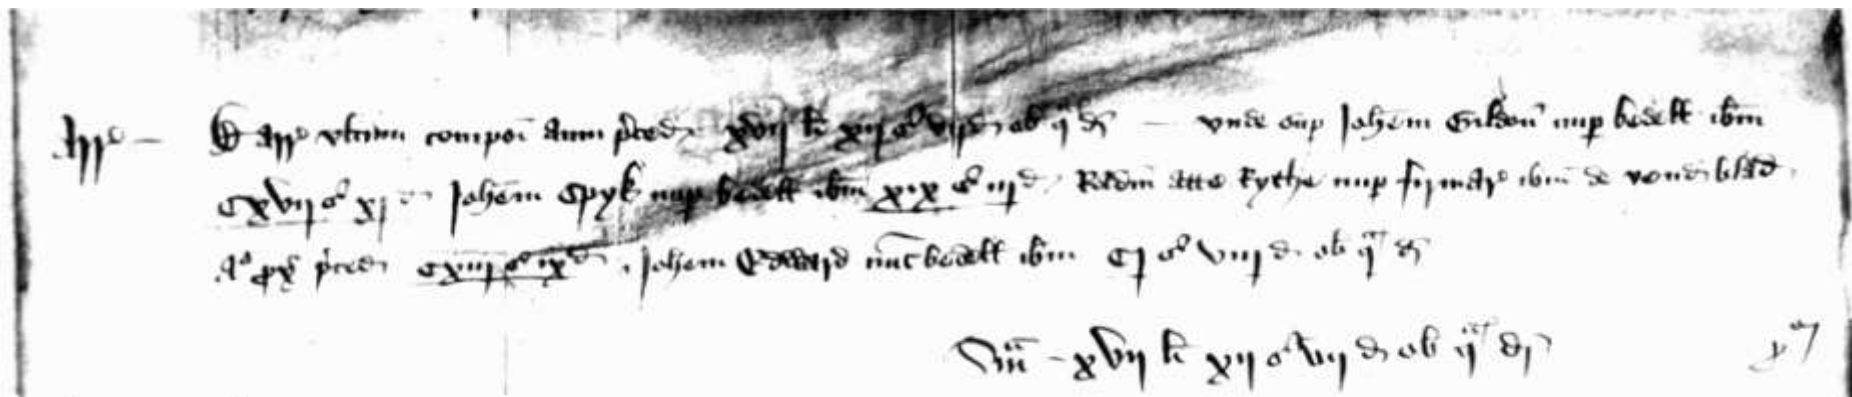 Arr' — De arr' ultimi compoti anni preced' xvij li xij s' vij d ob q' di' — unde sup Johem Gildon' nup bedell ibm
cxvij s' xj d Johem Spyk nup bedell ibm xix s' iij d Radm atte Rythe nup firmar' ibm de vend' blad'
A° px' preced' cxiij s' ix d Johem Edward nunc bedell ibm cj s' viij d ob q' di'
Sma — xvij li xij s' vij d ob q' di'